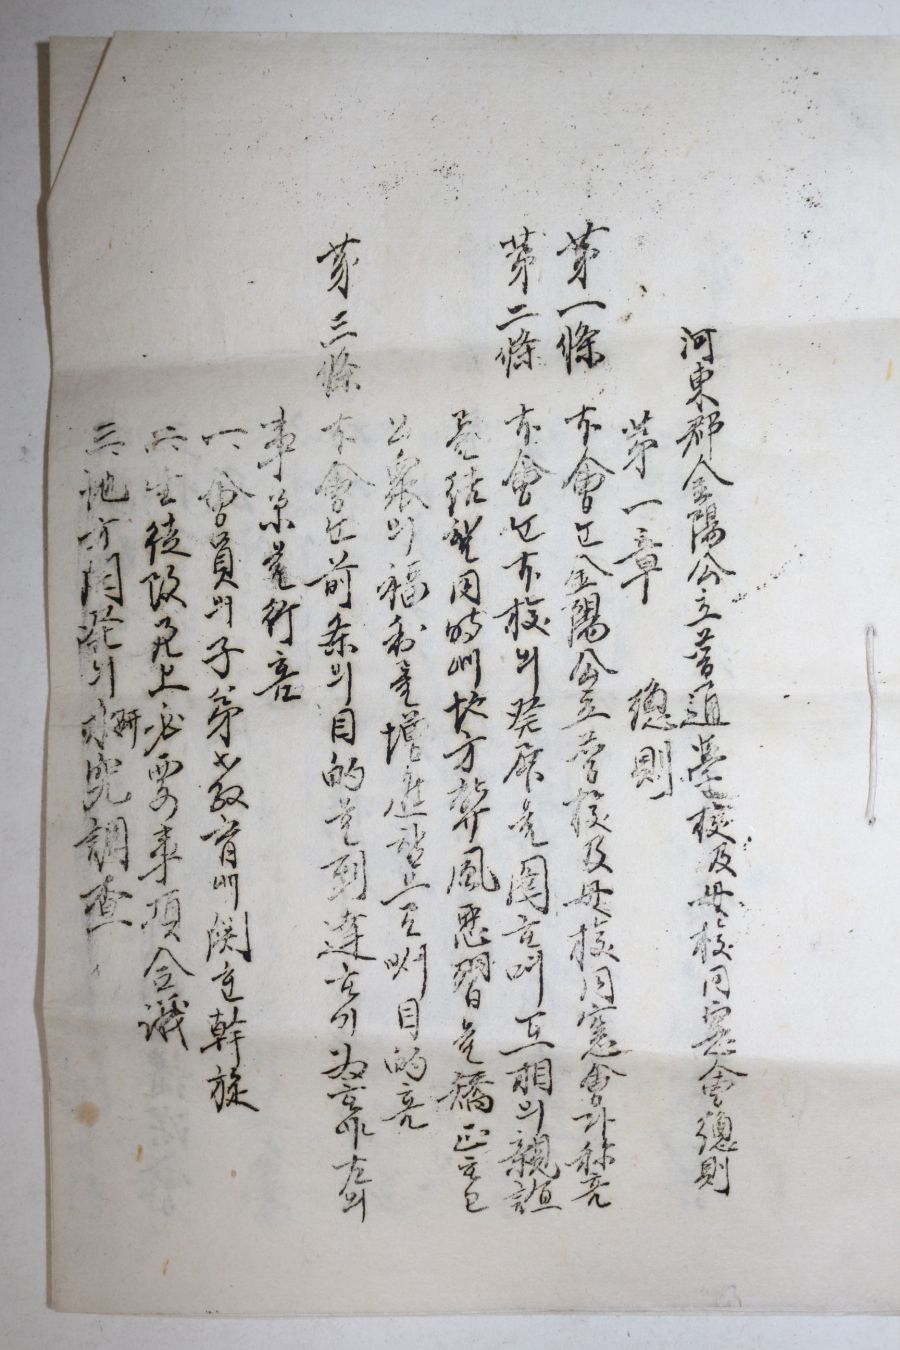 河東郡金陽公立普通學校及母校同窓會總則
第一章 總則
第一條 本會는 金陽公立普校及母校同窓會라 称홈
第二條 本會는 本校의 発展을 圖하며 互相의 親誼
를 結할 同時에 地方弊風惡習을 矯正하고
公衆의 福利를 增進함으로써 目的홈
第三條 本會는 前条의 目的을 到達하기 為하야 左의
事業을 行홈
一、會員의 子弟 教育에 関한 幹旋
二、生徒 上 必要事項 合議
三、地方開発의 研究調査